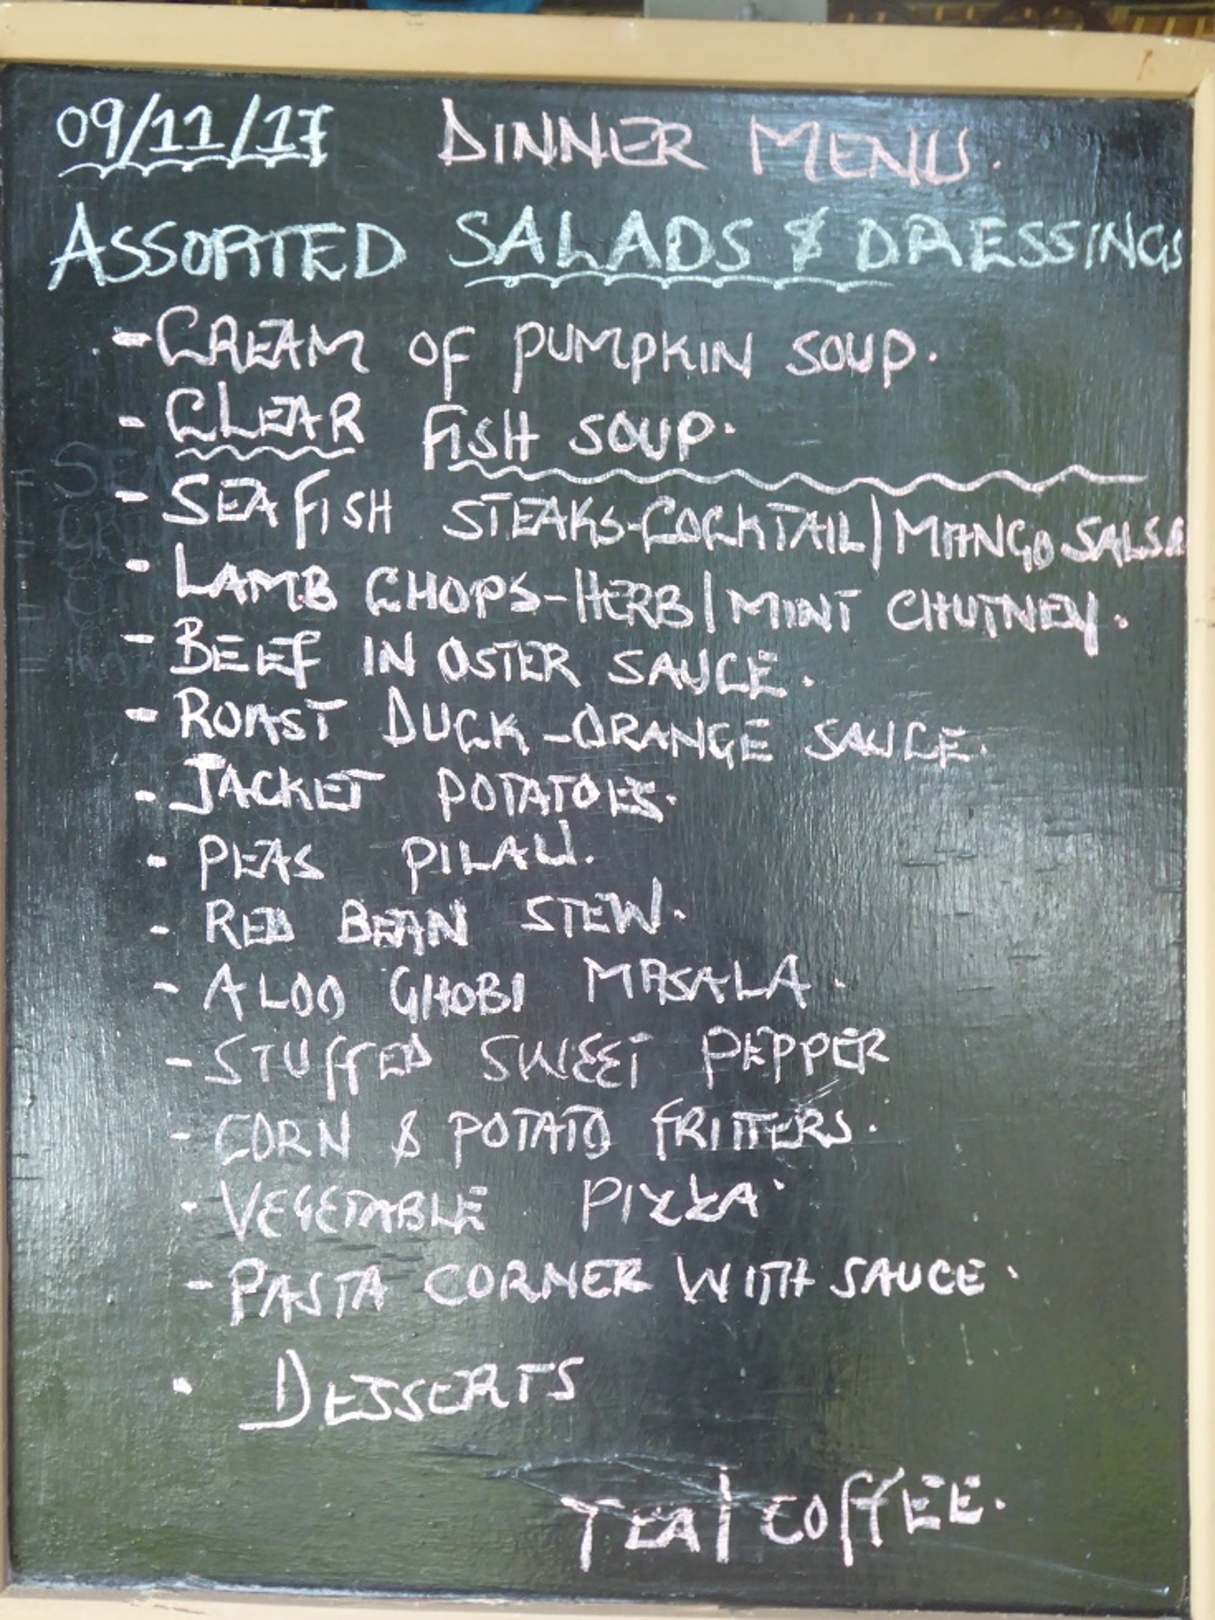 09/11/17 DINNER MENU.
ASSORTED SALADS & DRESSINGS
- CREAM OF PUMPKIN SOUP.
- CLEAR FISH SOUP.
- SEA FISH STEAKS-COCKTAIL/MANGO SALSA
- LAMB CHOPS-HERB/MINT CHUTNEY.
- BEEF IN OSTER SAUCE.
- ROAST DUCK-ORANGE SAUCE.
- JACKET POTATOES.
- PEAS PILAU.
- RED BEAN STEW.
- ALOO GHOBI MASALA.
- STUFFED SWEET PEPPER
- CORN & POTATO FRITTERS.
- VEGETABLE PIZZA.
- PASTA CORNER WITH SAUCE.
- DESSERTS
TEA/COFFEE.